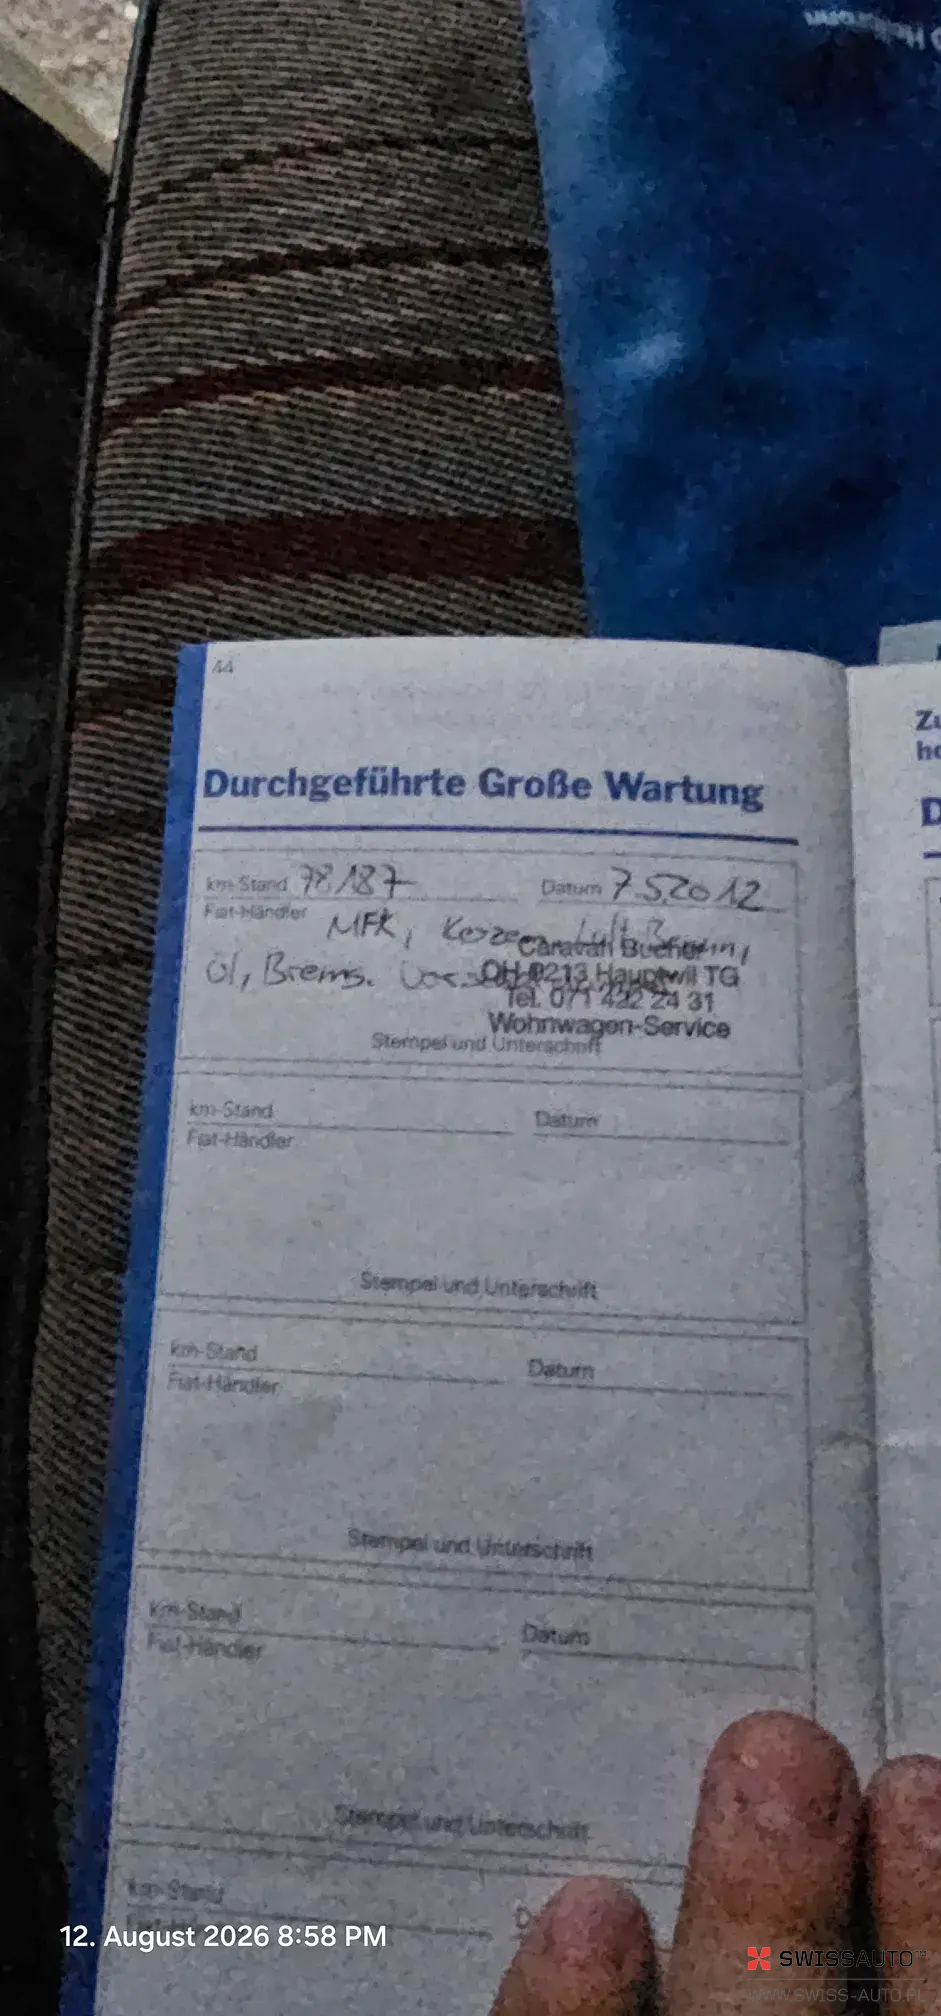 44
Durchgeführte Große Wartung
km-Stand 78187 Datum 7.5.2012
Fiat-Händler
MFK, Kerzen, Luft
Öl, Brems.
Caravan Bucher
CH-9213 Hauptwil TG
Tel. 071 422 24 31
Wohnwagen-Service
Stempel und Unterschrift
km-Stand Datum
Fiat-Händler
Stempel und Unterschrift
km-Stand Datum
Fiat-Händler
Stempel und Unterschrift
km-Stand Datum
Fiat-Händler
Stempel und Unterschrift
km-Stand
Zu
ho
D
12. August 2026 8:58 PM
SWISSAUTO™
WWW.SWISS-AUTO.PL